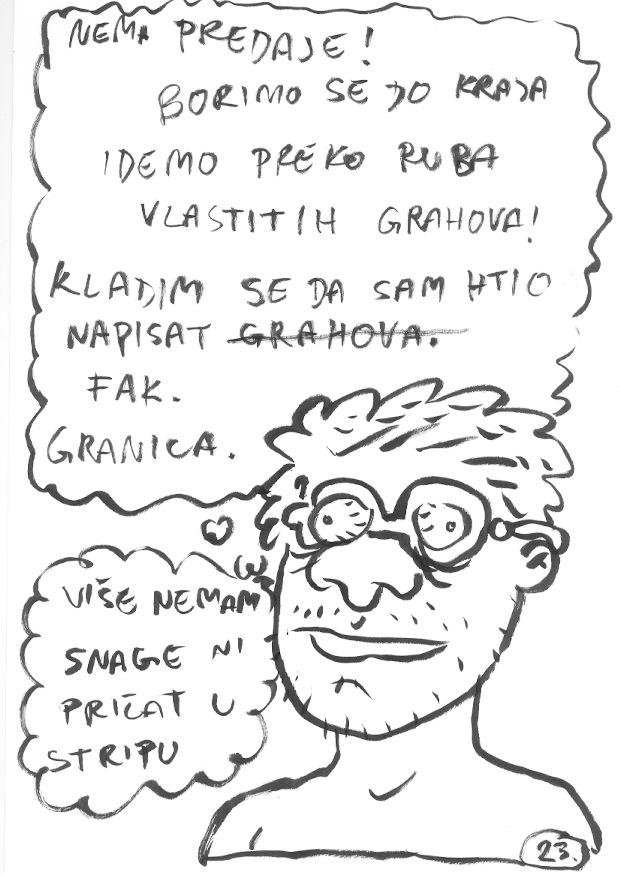 NEMA PREDAJE!
BORIMO SE DO KRAJA
IDEMO PREKO RUBA
VLASTITIH GRAHOVA!
KLADIM SE DA SAM HTIO
NAPISAT GRAHOVA.
FAK.
GRANICA.
VIŠE NEMAM
SNAGE NI
PRIČAT U
STRIPU
23.